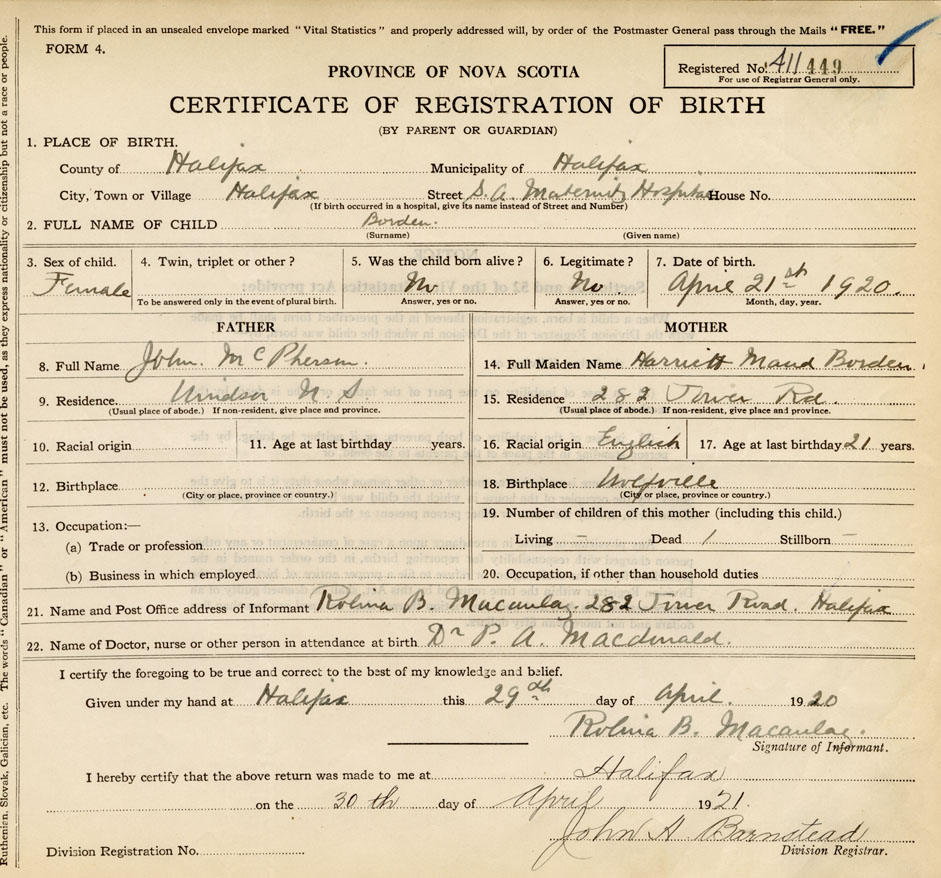 This form if placed in an unsealed envelope marked "Vital Statistics" and properly addressed will, by order of the Postmaster General pass through the Mails "FREE."
FORM 4.
Registered No. 411449
For use of Registrar General only.
PROVINCE OF NOVA SCOTIA
CERTIFICATE OF REGISTRATION OF BIRTH
(BY PARENT OR GUARDIAN)
1. PLACE OF BIRTH.
County of Halifax Municipality of Halifax
City, Town or Village Halifax Street S. A. Maternity Hospital House No.
(If birth occurred in a hospital, give its name instead of Street and Number)
2. FULL NAME OF CHILD Borden.
(Surname) (Given name)
3. Sex of child. Female
4. Twin, triplet or other?
To be answered only in the event of plural birth.
5. Was the child born alive? No
Answer, yes or no.
6. Legitimate? No.
Answer, yes or no.
7. Date of birth. April 21st 1920.
Month, day, year.
FATHER
8. Full Name John. McPherson.
9. Residence. Windsor N S
(Usual place of abode.) If non-resident, give place and province.
10. Racial origin 11. Age at last birthday years.
12. Birthplace
(City or place, province or country.)
13. Occupation:—
(a) Trade or profession
(b) Business in which employed
MOTHER
14. Full Maiden Name Harriett Maud Borden.
15. Residence 282 Tower Rd.
(Usual place of abode.) If non-resident, give place and province.
16. Racial origin English 17. Age at last birthday 21 years.
18. Birthplace Wolfville
(City or place, province or country.)
19. Number of children of this mother (including this child.)
Living – Dead 1 Stillborn –
20. Occupation, if other than household duties
21. Name and Post Office address of Informant Rolina B. Macaulay. 282 Tower Road. Halifax
22. Name of Doctor, nurse or other person in attendance at birth Dr P. A. Macdonald.
I certify the foregoing to be true and correct to the best of my knowledge and belief.
Given under my hand at Halifax this 29th day of April. 1920
Rolina B. Macaulay.
Signature of Informant.
I hereby certify that the above return was made to me at Halifax
on the 30 th day of April 1921.
John H Barnstead
Division Registrar.
Division Registration No.
Ruthenian, Slovak, Galician, etc. The words "Canadian" or "American" must not be used, as they express nationality or citizenship but not a race or people.